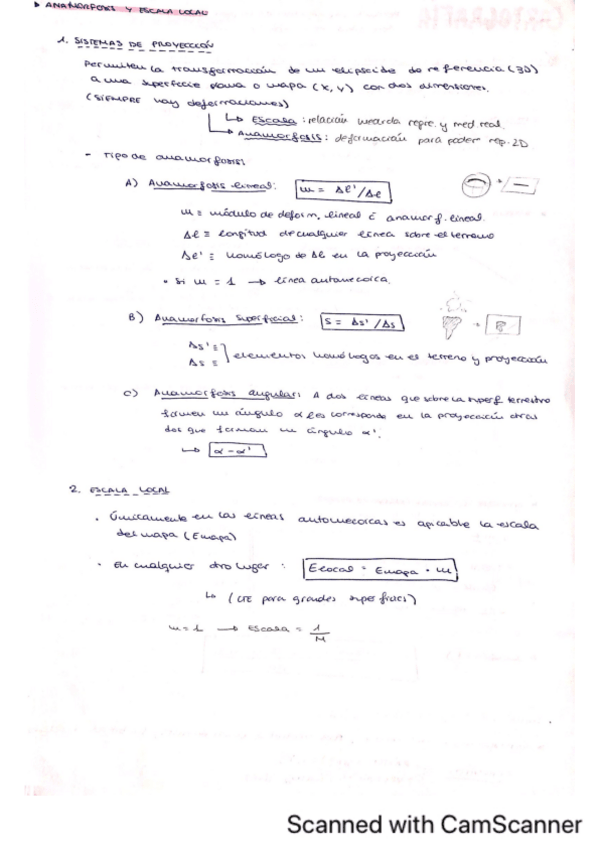 ▸ ANAMORFOSIS Y ESCALA LOCAL
1. SISTEMAS DE PROYECCIÓN
Permiten la transformación de un elipsoide de referencia (3D)
a una superficie plana o mapa (x, y) con dos dimensiones.
(SIEMPRE hay deformaciones)
↳ Escala: relación medida repre. y med real.
↳ Anamorfosis: deformación para poder rep. 2D
- Tipo de anamorfosis:
A) Anamorfosis lineal: m = Δl'/Δl
m ≡ módulo de deform. lineal ó anamorf. lineal.
Δl ≡ longitud de cualquier línea sobre el terreno
Δl' ≡ homólogo de Δl en la proyección
• Si m = 1 → línea automecoica.
B) Anamorfosis superficial: S = Δs'/Δs
Δs' ≡
Δs ≡ } elementos homólogos en el terreno y proyección
C) Anamorfosis angular: A dos líneas que sobre la superf terrestre
formen un ángulo α les corresponde en la proyección otras
dos que forman un ángulo α'.
↳ α - α'
2. ESCALA LOCAL
• Únicamente en las líneas automecoicas es aplicable la escala
del mapa (Emapa)
• En cualquier otro lugar: Elocal = Emapa · m
↳ (CTE para grandes superficies)
m = 1 → Escala = 1/M
Scanned with CamScanner